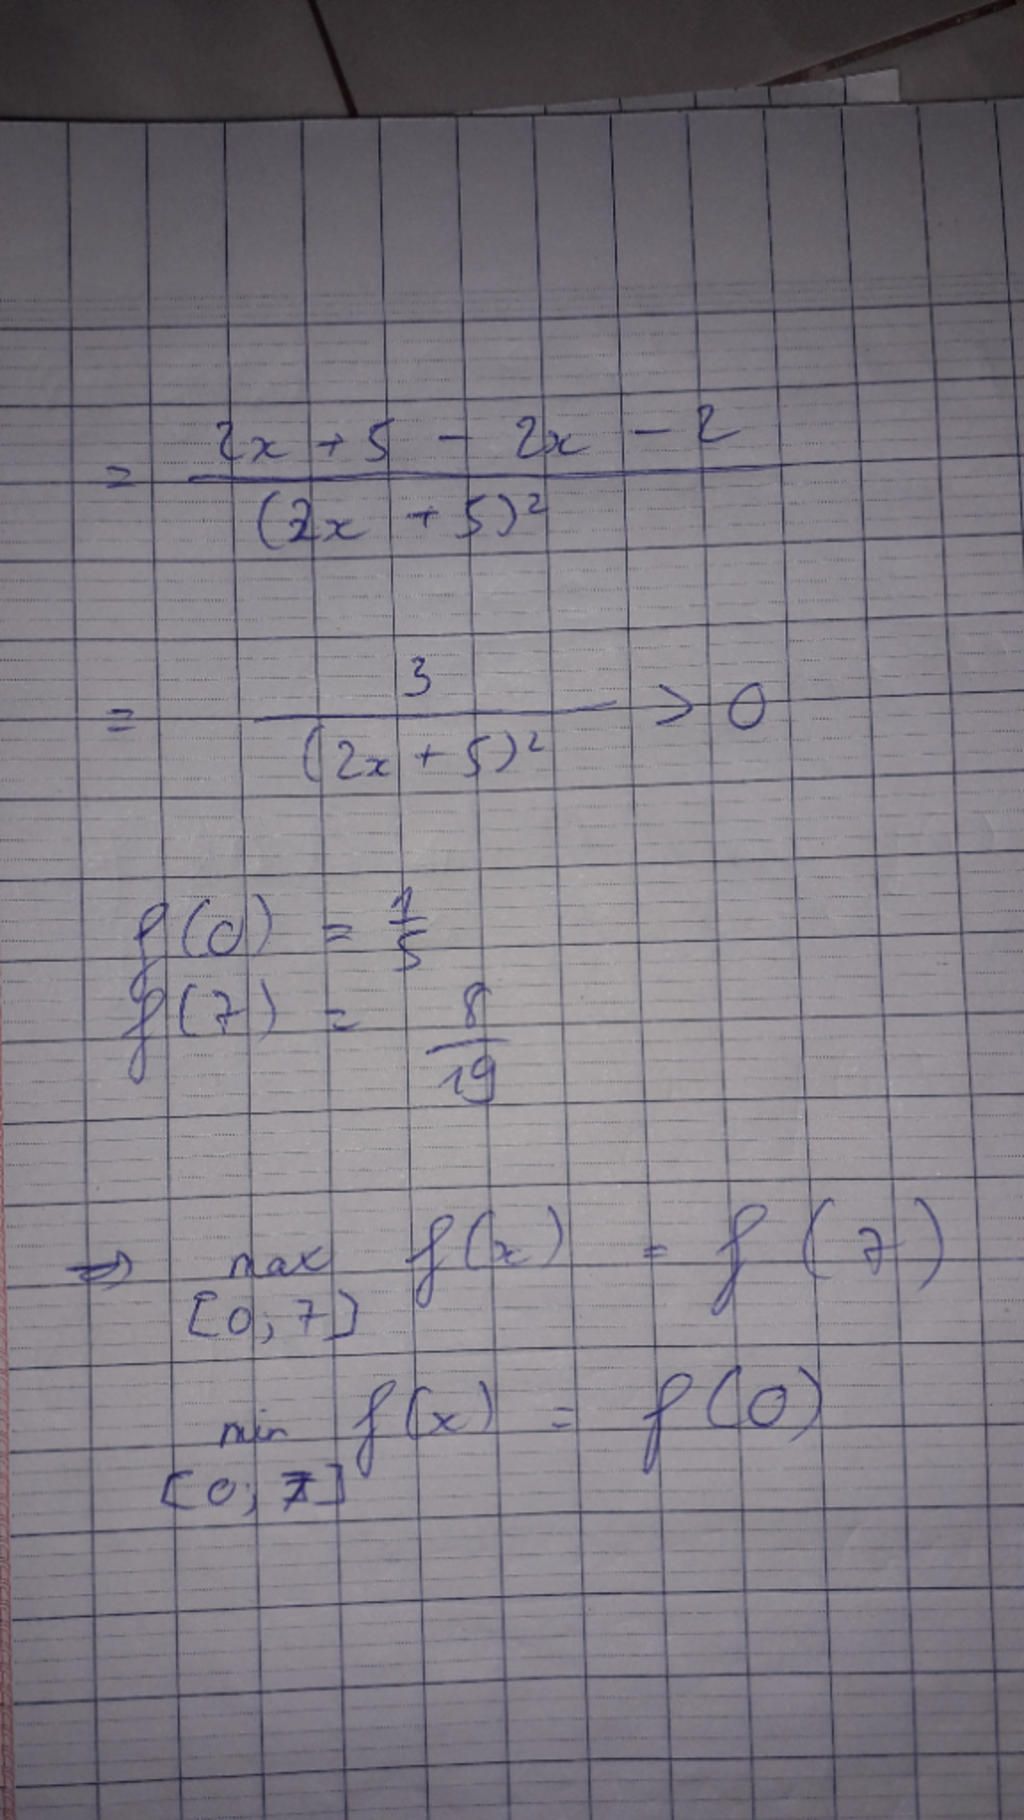 = (2x + 5 - 2x - 2) / (2x + 5)²
= 3 / (2x + 5)² > 0
f(0) = 1/5
f(7) = 8/19
⇒ max f(x) = f(7)
[0; 7]
min f(x) = f(0)
[0; 7]